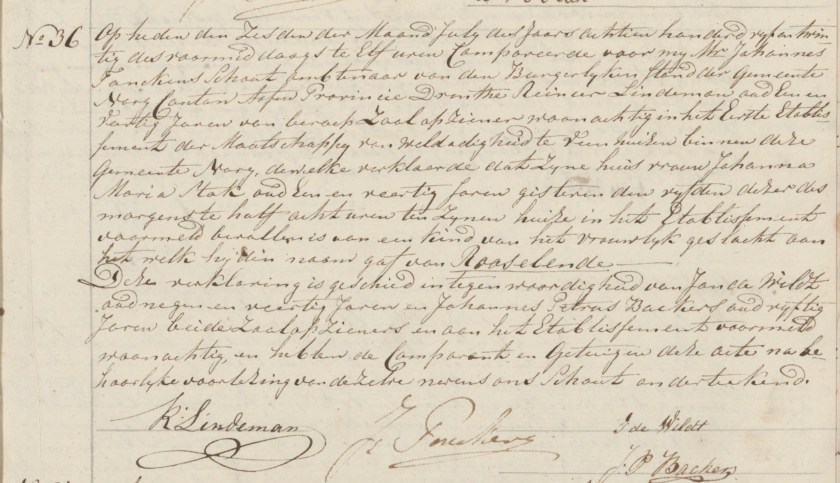 No 36 Op heden den Zesden der Maand July des Jaars achtien honderd vyf en twin
tig des voormiddaags te Elf uren Compareerde voor my Mr Johannes
Tonckens Schout ambtenaar van den Burgerlyken Stand der Gemeente
Norg Canton Assen Provincie Drenthe Reinier Lindeman oud Een en
veertig Jaren van beroep Zaalopziener woonachtig in het Eerste Etablis-
sement der Maatschappy van weldadigheid te Veenhuizen binnen deze
Gemeente Norg, dewelke verklaarde dat Zyne huisvrouw Johanna
Maria Stok oud Een en veertig Jaren gisteren den vyfden dezer des
morgens te half acht uren ten Zynen huize in het Etablissement
voormeld bevallen is van een kind van het vrouwlyk geslacht aan
het welk hy den naam gaf van Rooselende
Deze verklaring is geschied in tegenwoordigheid van Jan de Wildt
oud negen en veertig Jaren en Johannes Petrus Backers oud vyftig
Jaren beide Zaalopzieners en aan het Etablissement voormeld
woonachtig, en hebben de Comparant en Getuigen deze acte na be-
hoorlyke voorlezing van dezelve nevens ons Schout onderteekend.
R: Lindeman J Tonckens J de Wildt
J: P Backers